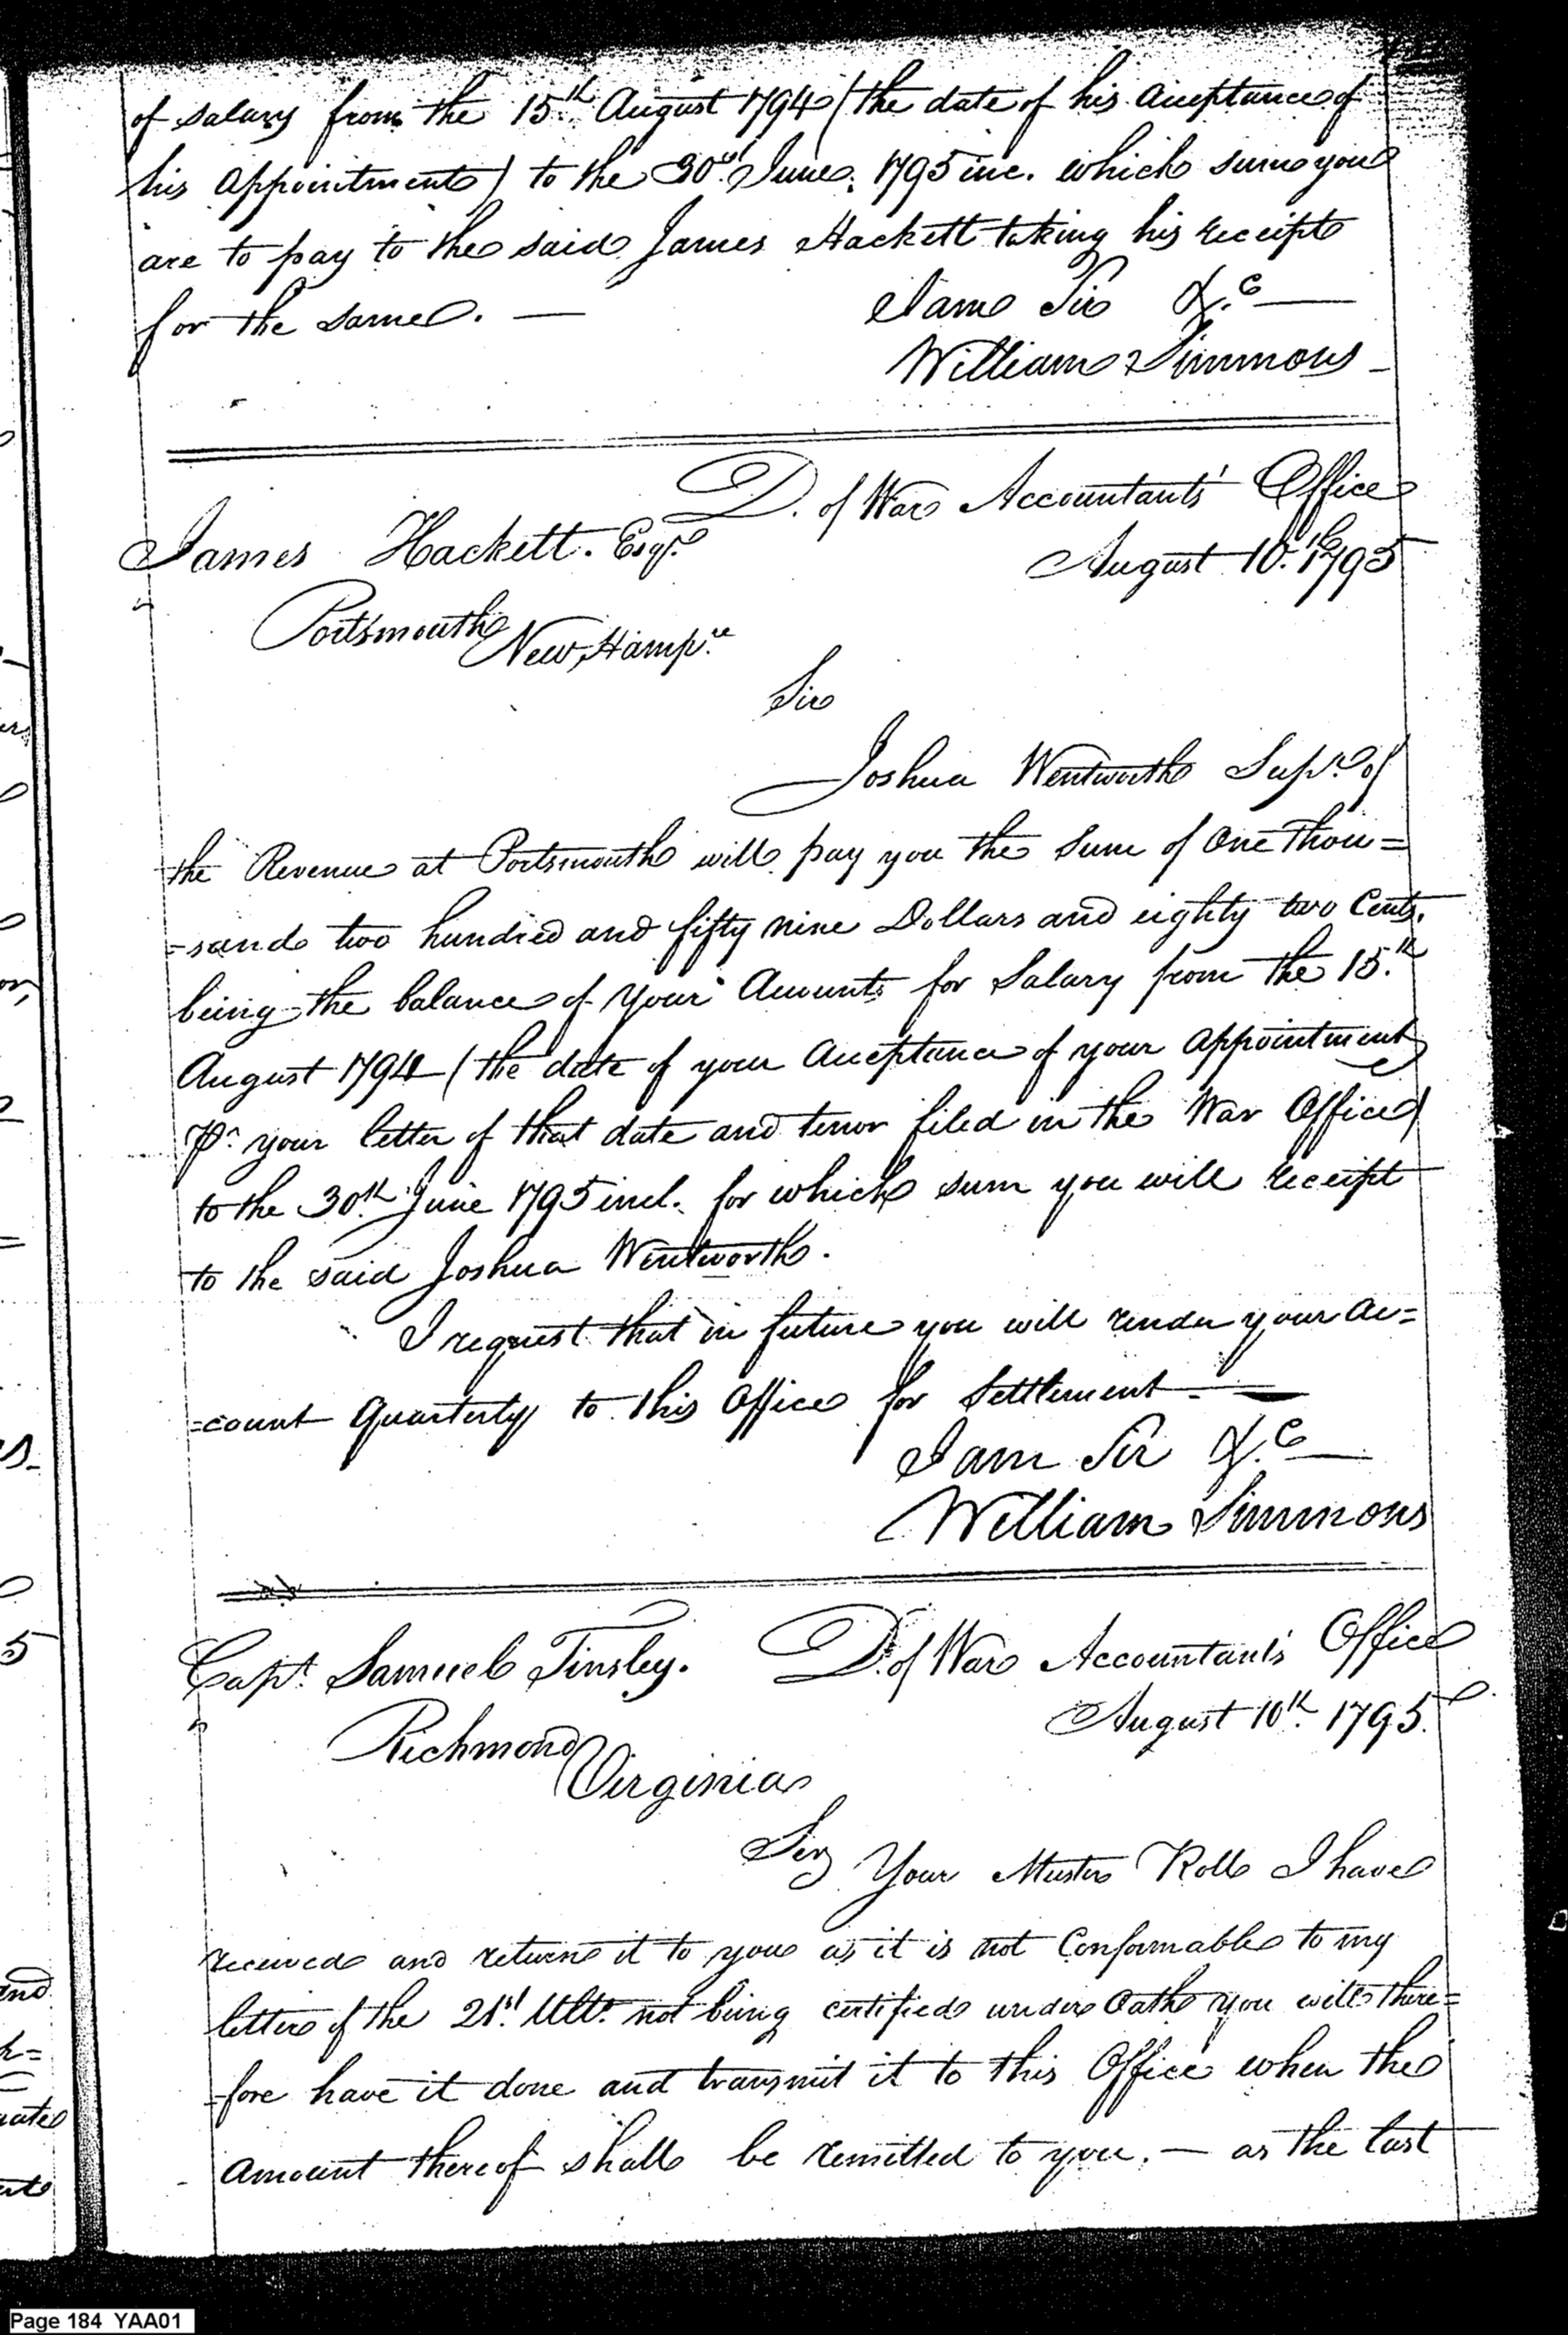 of salary from the 15th August 1794 (the date of his Acceptance of
his Appointment) to the 30th June. 1795 inc. which sum you
are to pay to the said James Hackett taking his receipt
for the same. —
I am Sir &.c —
William Simmons
D. of War Accountants' Office
James Hackett. Esqr.
August 10.th 1795
Portsmouth
New Hampre
Sir
Joshua Wentworth Supr. of
the Revenue at Portsmouth will pay you the Sum of One Thou=
=sand two hundred and fifty nine Dollars and eighty two Cents.
being the balance of your Amounts for Salary from the 15.th
August 1794 (the date of your Acceptance of your Appointment
Pr. your letter of that date and tenor filed in the War Office)
to the 30th June 1795 incl. for which sum you will receipt
to the said Joshua Wentworth.
I request that in future you will render your Ac=
=count Quarterly to this Office for Settlement —
I am Sir &.c —
William Simmons
Capt. Samuel Tinsley. D. of War Accountant's Office
August 10th. 1795.
Richmond
Virginia
Sir
Your Muster Roll I have
received and return it to you as it is not Conformable to my
letter of the 21st. Ulto. not being certified under Oath you will there=
=fore have it done and transmit it to this Office when the
Amount thereof shall be remitted to you. — as the last
Page 184 YAA01